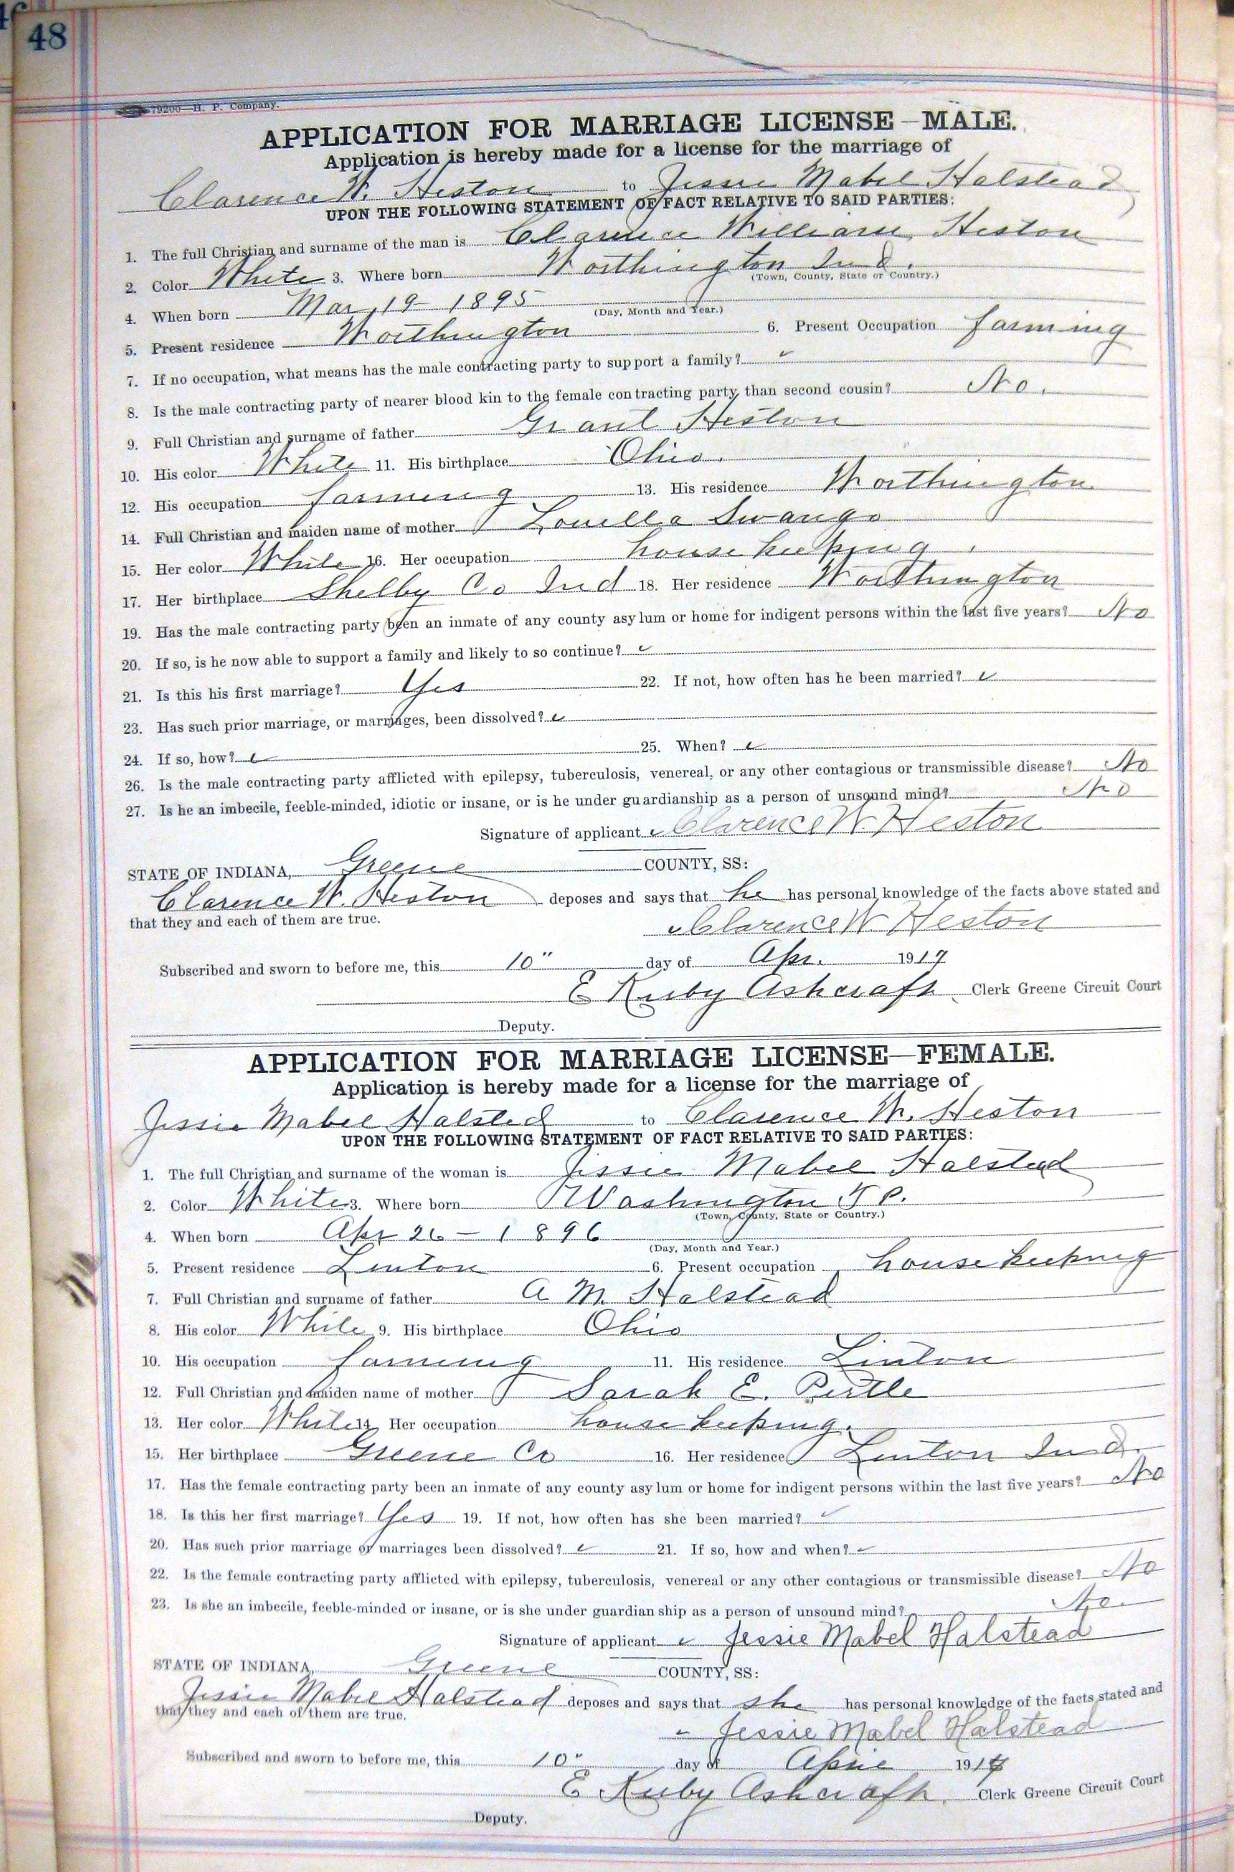 48
79200—H. P. Company.
APPLICATION FOR MARRIAGE LICENSE—MALE.
Application is hereby made for a license for the marriage of
Clarence W. Heston to Jessie Mabel Halstead
UPON THE FOLLOWING STATEMENT OF FACT RELATIVE TO SAID PARTIES:
1. The full Christian and surname of the man is Clarence William Heston
2. Color White 3. Where born Worthington Ind.
(Town, County, State or Country.)
4. When born Mar 19 - 1895
(Day, Month and Year.)
5. Present residence Worthington 6. Present Occupation farming
7. If no occupation, what means has the male contracting party to support a family? ✓
8. Is the male contracting party of nearer blood kin to the female contracting party than second cousin? No.
9. Full Christian and surname of father Grant Heston
10. His color White 11. His birthplace Ohio.
12. His occupation farming 13. His residence Worthington
14. Full Christian and maiden name of mother Louella Swango
15. Her color White 16. Her occupation house keeping.
17. Her birthplace Shelby Co Ind 18. Her residence Worthington
19. Has the male contracting party been an inmate of any county asylum or home for indigent persons within the last five years? No
20. If so, is he now able to support a family and likely to so continue? ✓
21. Is this his first marriage? Yes 22. If not, how often has he been married? ✓
23. Has such prior marriage, or marriages, been dissolved? ✓
24. If so, how? ✓ 25. When? ✓
26. Is the male contracting party afflicted with epilepsy, tuberculosis, venereal, or any other contagious or transmissible disease? No
27. Is he an imbecile, feeble-minded, idiotic or insane, or is he under guardianship as a person of unsound mind? No
Signature of applicant ✓ Clarence W. Heston
STATE OF INDIANA, Greene COUNTY, SS:
Clarence W. Heston deposes and says that he has personal knowledge of the facts above stated and
that they and each of them are true.
✓ Clarence W Heston
Subscribed and sworn to before me, this 10" day of Apr. 1917
E Ruby Ashcraft. Clerk Greene Circuit Court
Deputy.
APPLICATION FOR MARRIAGE LICENSE—FEMALE.
Application is hereby made for a license for the marriage of
Jessie Mabel Halsted to Clarence W. Heston
UPON THE FOLLOWING STATEMENT OF FACT RELATIVE TO SAID PARTIES:
1. The full Christian and surname of the woman is Jessie Mabel Halstead
2. Color White 3. Where born Washington T P.
(Town, County, State or Country.)
4. When born Apr 26 - 1896
(Day, Month and Year.)
5. Present residence Linton 6. Present occupation house keeping
7. Full Christian and surname of father A M. Halstead
8. His color White 9. His birthplace Ohio
10. His occupation farming 11. His residence Linton
12. Full Christian and maiden name of mother Sarah E. Pirtle
13. Her color White 14. Her occupation house keeping.
15. Her birthplace Greene Co 16. Her residence Linton Ind.
17. Has the female contracting party been an inmate of any county asylum or home for indigent persons within the last five years? No
18. Is this her first marriage? Yes 19. If not, how often has she been married? ✓
20. Has such prior marriage or marriages been dissolved? ✓ 21. If so, how and when? ✓
22. Is the female contracting party afflicted with epilepsy, tuberculosis, venereal or any other contagious or transmissible disease? No
23. Is she an imbecile, feeble-minded or insane, or is she under guardian ship as a person of unsound mind? No.
Signature of applicant ✓ Jessie Mabel Halstead
STATE OF INDIANA, Greene COUNTY, SS:
Jessie Mabel Halstead deposes and says that she has personal knowledge of the facts stated and
that they and each of them are true.
✓ Jessie Mabel Halstead
Subscribed and sworn to before me, this 10" day of Aprie 1917
E Ruby Ashcraft. Clerk Greene Circuit Court
Deputy.